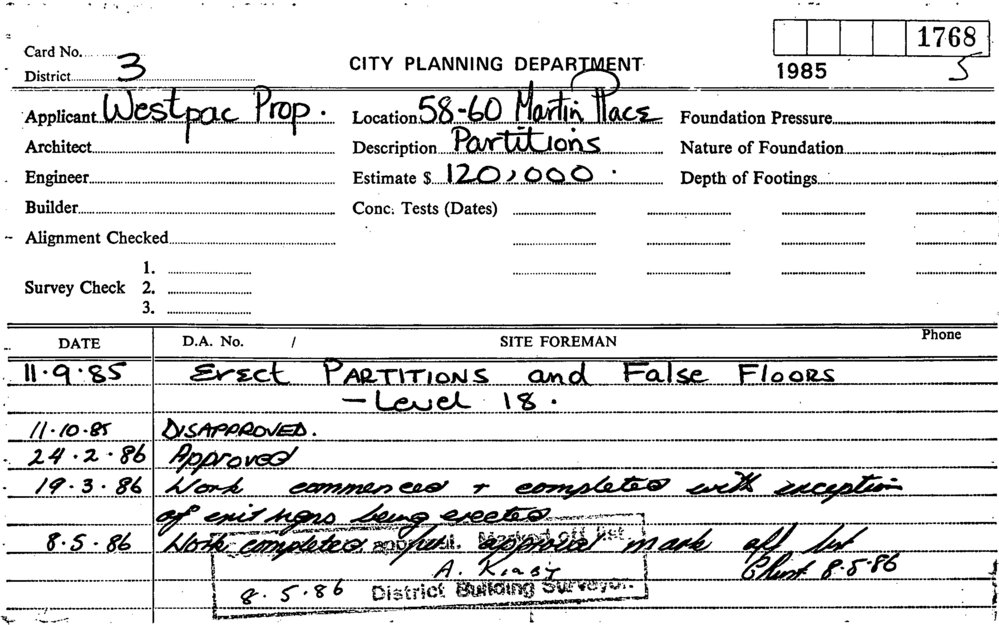 Card No.
1768
District 3
CITY PLANNING DEPARTMENT
1985
5
Applicant Westpac Prop.
Location 58-60 Martin Place
Foundation Pressure
Architect
Description Partitions
Nature of Foundation
Engineer
Estimate $ 120,000.
Depth of Footings
Builder
Conc. Tests (Dates)
Alignment Checked
1.
Survey Check 2.
3.
DATE D.A. No. / SITE FOREMAN Phone
11.9.85 Erect PARTITIONS and False FLOORS
- Level 18.
11.10.85 DISAPPROVED.
24.2.86 Approved
19.3.86 Work commenced + completed with exception
of exit signs being erected
8.5.86 Work completed as per approval mark off list
approval. Marked off list
A. Kirby
8.5.86
8.5.86 District Building Surveyor.